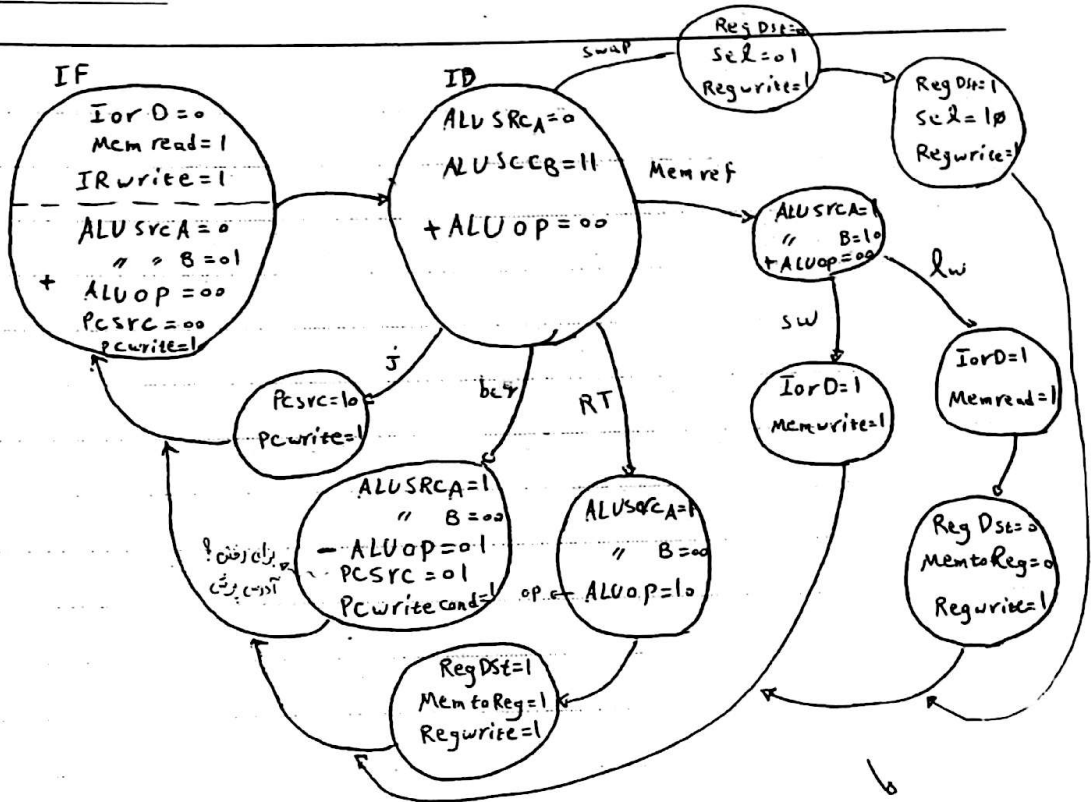 IF
IorD=0
Mem read=1
IRwrite=1
ALUSrcA=0
〃 〃 B=01
+ ALUOP=00
Pcsrc=00
Pcwrite=1
ID
ALUSRCA=0
ALUSCCB=11
+ALUOP=00
swap
RegDst=0
Sel=01
Regwrite=1
RegDst=1
Sel=10
Regwrite=1
Memref
ALUSrcA=1
〃 B=10
+ALUop=00
lw
sw
IorD=1
Memwrite=1
IorD=1
Memread=1
RegDst=0
MemtoReg=0
Regwrite=1
j
Pcsrc=10
Pcwrite=1
beq
ALUSRCA=1
〃 B=00
- ALUOP=01
PCSrc=01
PCwritecond=1
برای رفتن؟
آدرس پرش
RT
ALUSrcA=1
〃 B=00
op ← ALUOP=10
RegDSt=1
MemtoReg=1
Regwrite=1